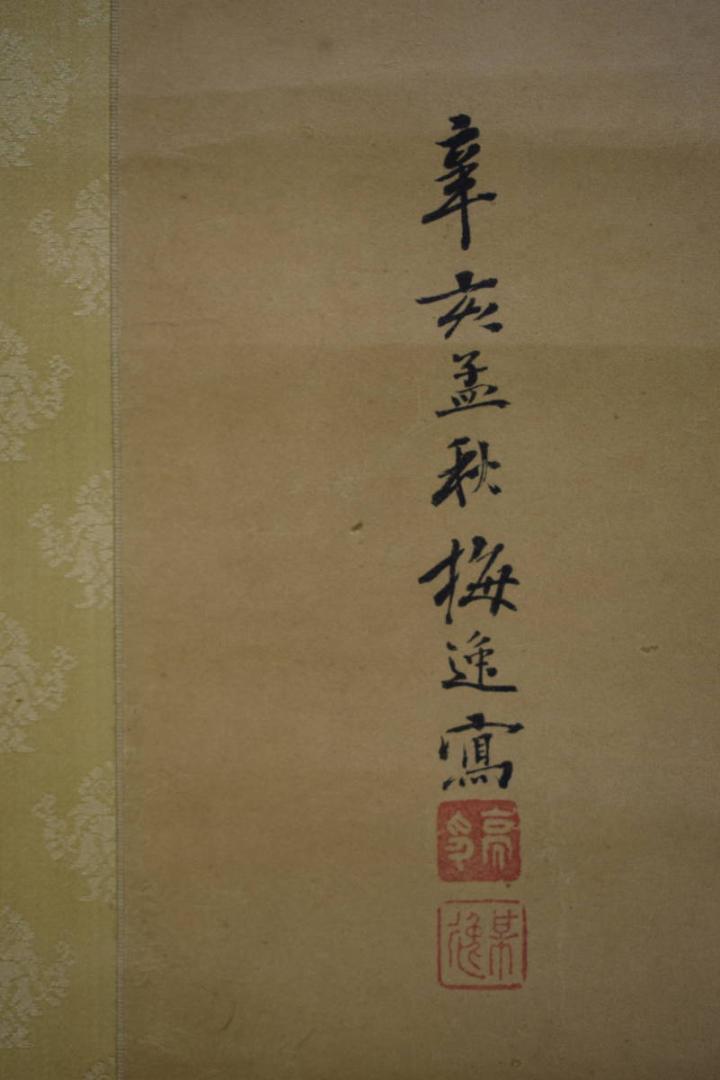 辛亥孟秋梅逸寫
亮印
某逸